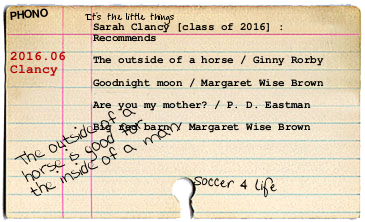 PHONO
It's the little things
Sarah Clancy [class of 2016] :
Recommends
2016.06
Clancy
The outside of a horse / Ginny Rorby
Goodnight moon / Margaret Wise Brown
Are you my mother? / P. D. Eastman
Big red barn / Margaret Wise Brown
The outside of a
horse is good for
the inside of a man
Soccer 4 life